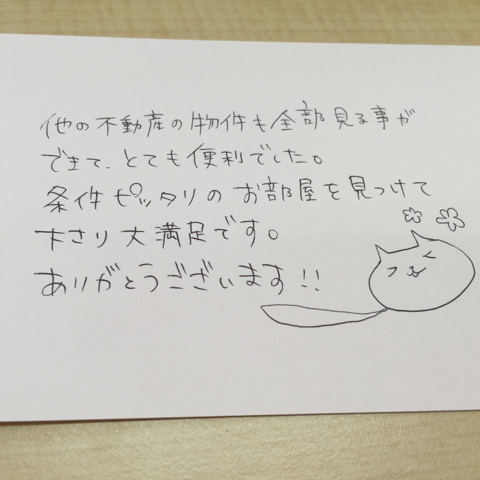 他の不動産の物件も全部見る事が
できて、とても便利でした。
条件ピッタリのお部屋を見つけて
下さり大満足です。
ありがとうございます!!